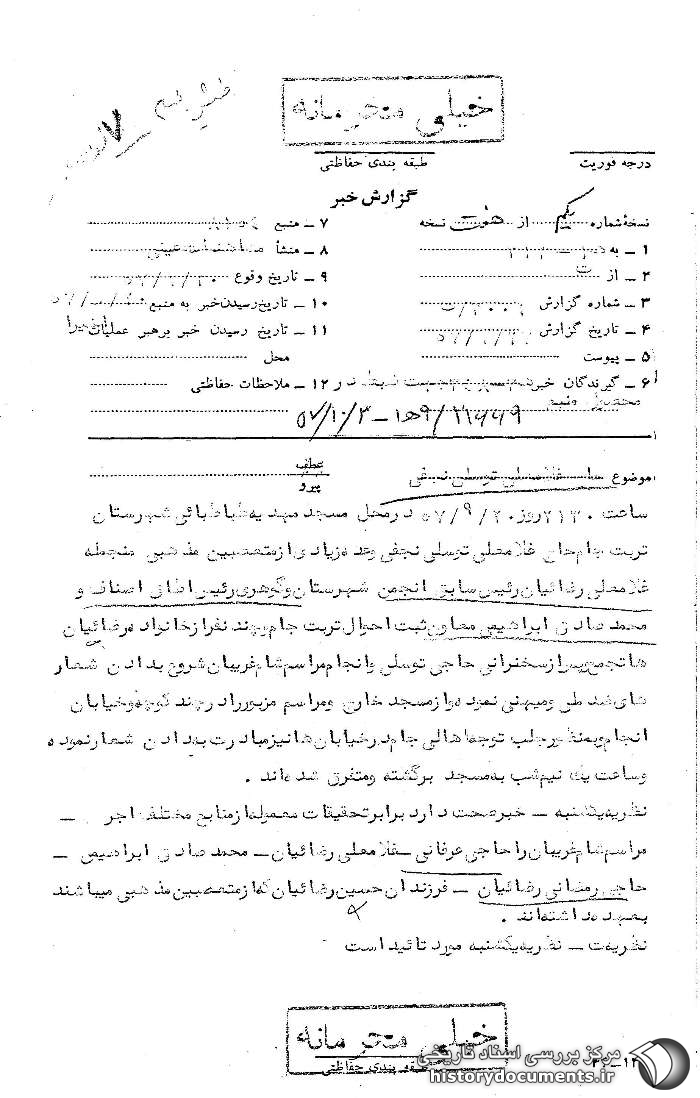 خیلی محرمانه
درجه فوریت
طبقه بندی حفاظتی
گزارش خبر
نسخهٔ شماره یکم از هفت نسخه
۷ ـ منبع
۱ ـ به
۸ ـ منشأ
۲ ـ از
۹ ـ تاریخ وقوع
۳ ـ شماره گزارش
۱۰ ـ تاریخ رسیدن خبر به منبع
۴ ـ تاریخ گزارش
۱۱ ـ تاریخ رسیدن خبر برهبر عملیات
۵ ـ پیوست
محل
۶ ـ گیرندگان خبر
۱۲ ـ ملاحظات حفاظتی
۵۷/۱۰/۳ ـ ۹ه۱/۲۱۶۶۹
موضوع غلامعلی توسلی نجفی
عطف
پیرو
ساعت ۲۱۳۰ روز ۵۷/۹/۲۰ در محل مسجد مهدیه طباطبائی شهرستان
تربت جام حاج غلامعلی توسلی نجفی وعده زیادی از متعصبین مذهبی منجمله
غلامعلی رضائیان رئیس سابق انجمن شهرستان وگوهری رئیس اطاق اصناف و
محمد صادق ابراهیمی معاون ثبت احوال تربت جام وچند نفر از خانواده رضائیان
ها تجمع وپس از سخنرانی حاجی توسلی وانجام مراسم شام غریبان شروع بدادن شعار
های ضد ملی ومیهنی نموده واز مسجد خارج ومراسم مزبور را در چند کوچه وخیابان
انجام وبمنظور جلب توجه اهالی جام در خیابان ها نیز مبادرت به دادن شعار نموده
وساعت یک نیم شب به مسجد برگشته ومتفرق شده اند .
نظریه یکشنبه ـ خبر صحت دارد برابر تحقیقات معموله از منابع مختلف اجرـ
مراسم شام غریبان را حاجی عرفانی ـ غلامعلی رضائیان ـ محمد صادق ابراهیمی ـ
حاجی رمضانی رضائیان ـ فرزندان حسین رضائیان که از متعصبین مذهبی میباشند
بعهده داشته اند .
نظریه ت ـ نظریه یکشنبه مورد تائید است
خیلی محرمانه
طبقه بندی حفاظتی
مرکز بررسی اسناد تاریخی
historydocuments.ir